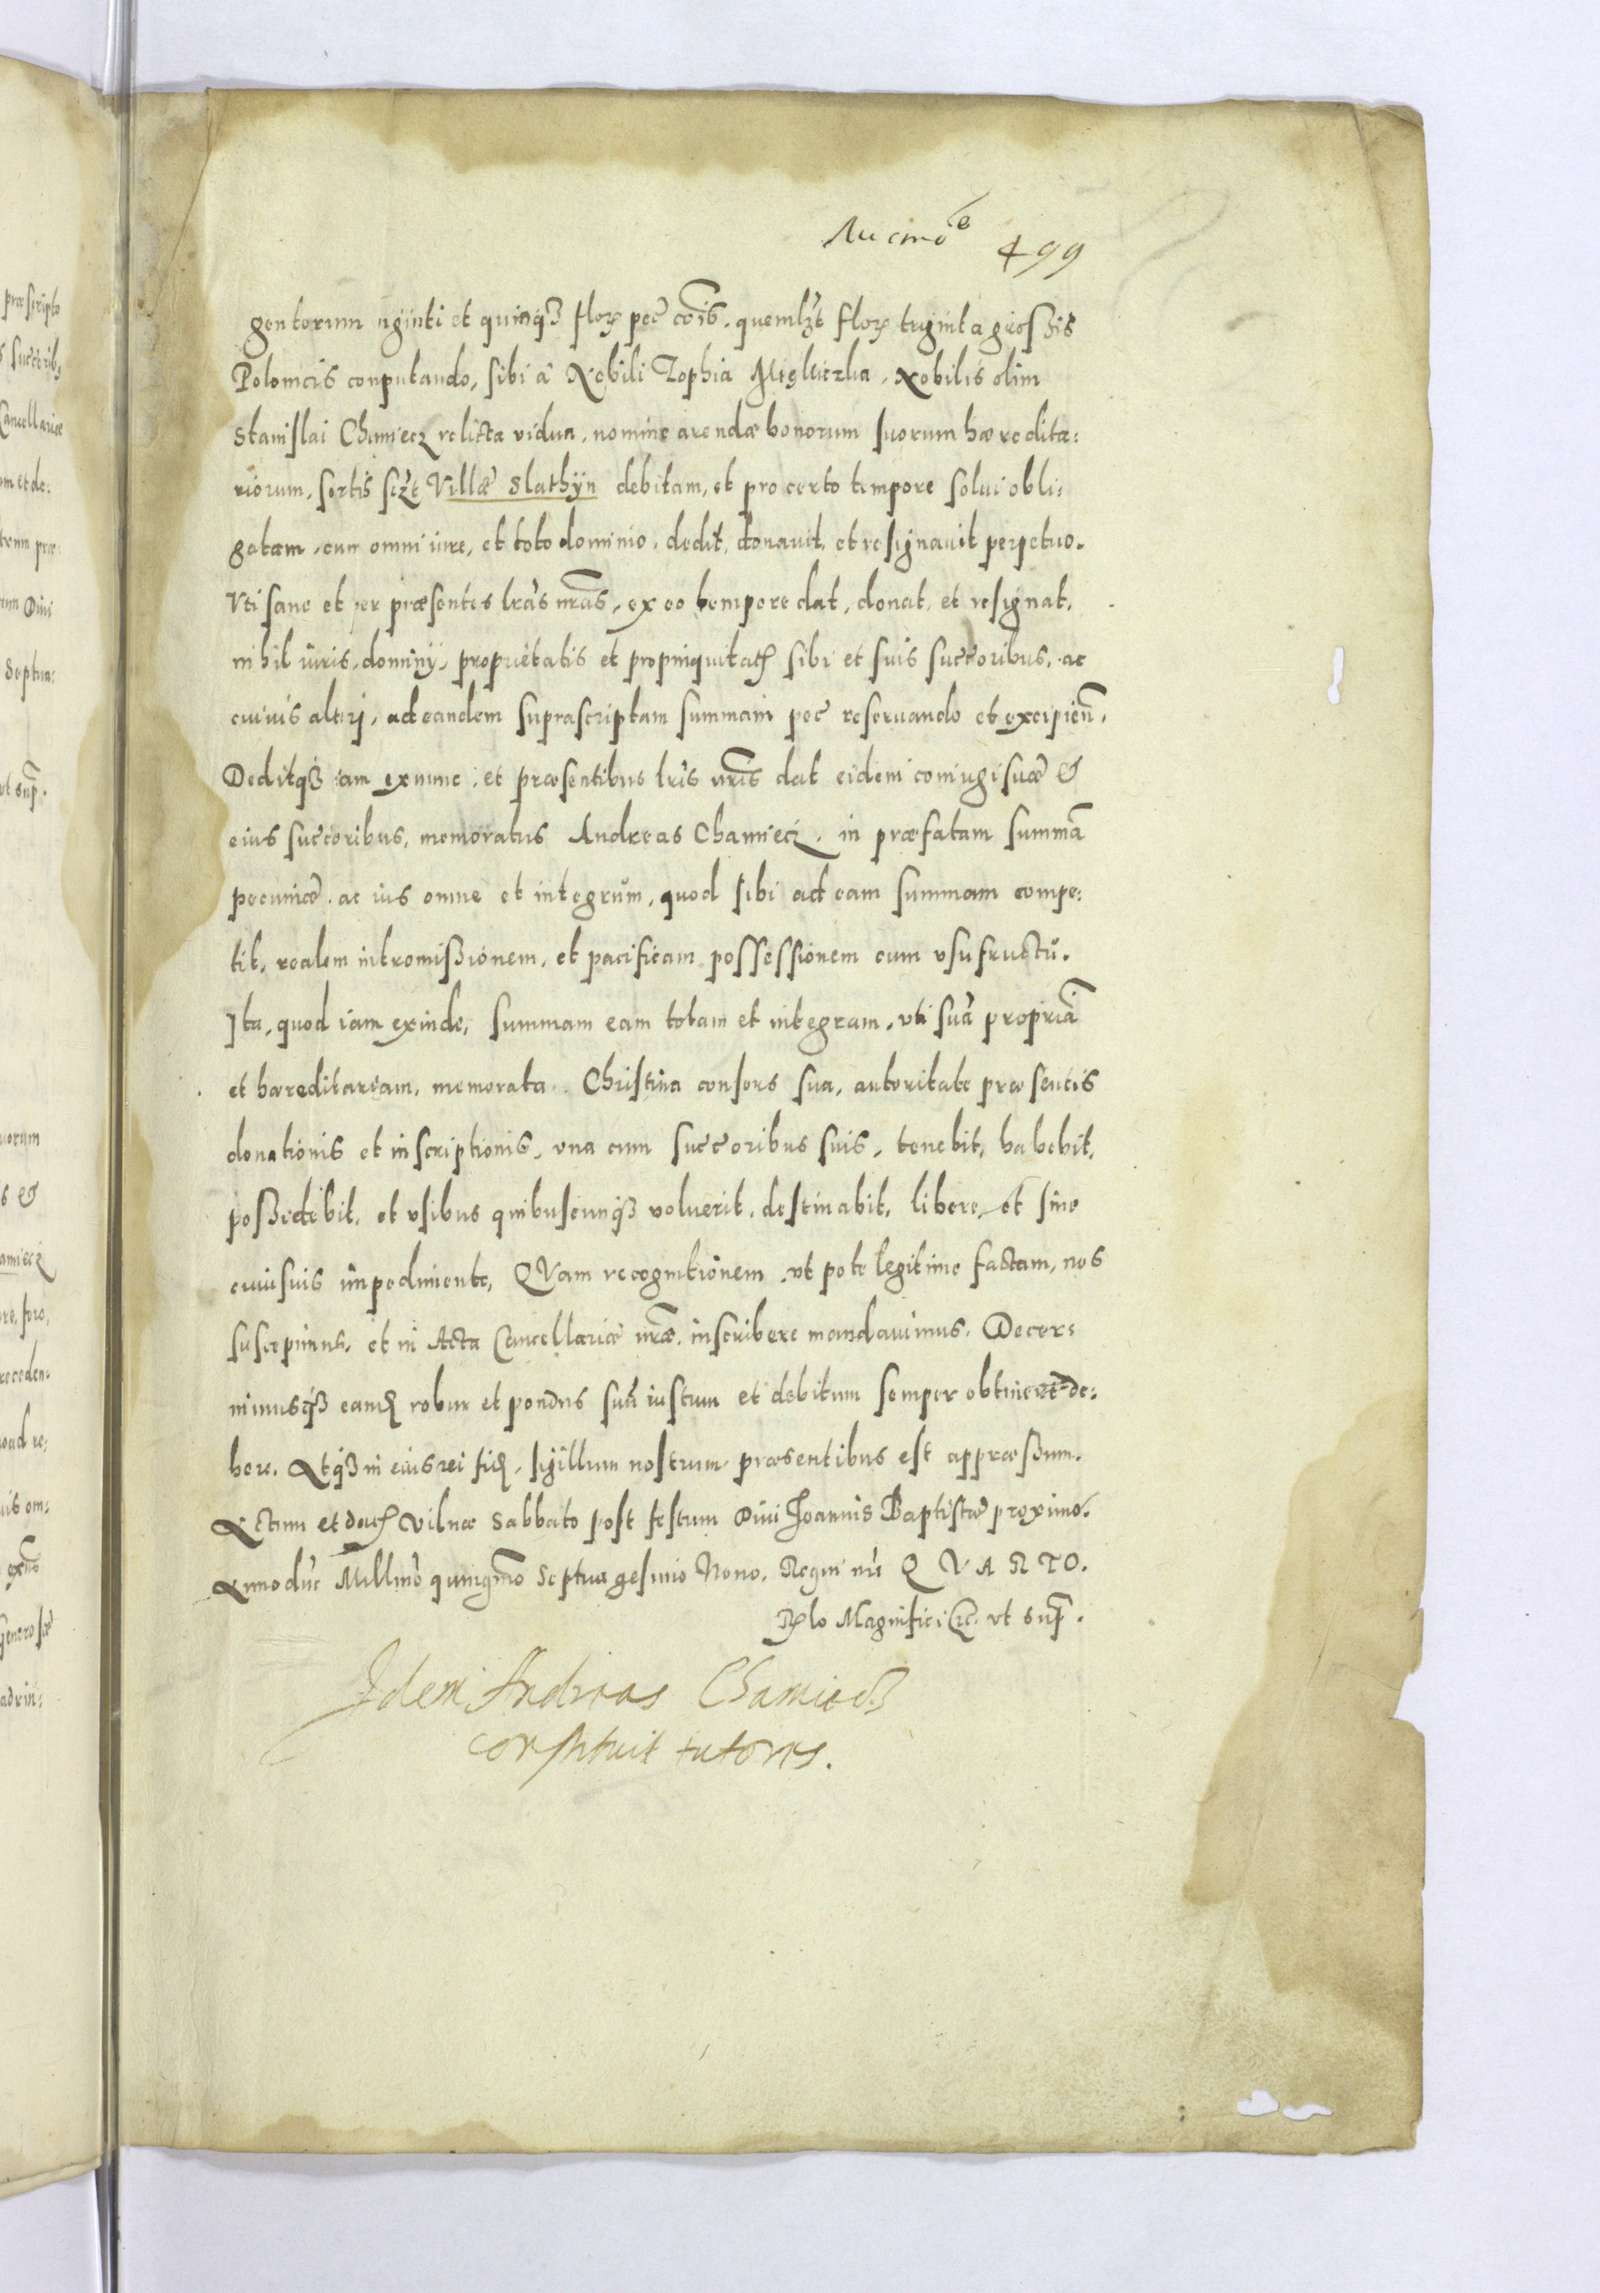 499
gentorum uiginti et quinqȝ flor pec cois. quemlȝt flor triginta großis
Polonicis conputando, sibi a Nobili Zophia , Nobilis olim
Stanislai Chamiecz relicta vidua, nomine arendæ bonorum suorum hæredita:
riorum, sortis sczt Villæ Slathÿn debitam, et pro certo tempore solui obli:
gatam, cum omni iure, et toto dominio, dedit, donauit, et resignauit perpetuo.
Vti sane et per præsentes lras nras, ex eo tempore dat, donat, et resignat,
nihil iuris, dominÿ, proprietatis et propinquitatȝ sibi et suis succoribus, ac
cuiuis alteri, ad eandem suprascriptam summam pec reseruando et excipien.
Deditqȝ iam exnunc, et præsentibus lris nris dat eidem coniugi suæ &
eius succoribus, memoratus Andreas Chamiecz, in præfatam summã
pecuniæ, ac ius omne et integrum, quod sibi ad eam summam compe:
tit, realem intromißionem, et pacificam possessionem cum vsufructu.
Ita, quod iam exinde, summam eam totam et integram, vti suã propriã
et hæreditariam, memorata Christina consors sua, autoritate præsentis
donationis et inscriptionis, vna cum succoribus suis, tenebit, habebit,
poßidebit, et vsibus quibuscunqȝ voluerit, destinabit, libere, et sine
cuiusuis impedimento, QVam recognitionem, vt pote legitime factam, nos
suscepimus, et in Acta Cancellariæ nræ inscribere mandauimus. Decer:
nimusqȝ eandȝ robur et pondus suũ iustum et debitum semper obtinere de:
bere. Atqȝ in eius rei fidȝ, sigillum nostrum præsentibus est appræßum.
Actum et datȝ Vilnæ Sabbato post festum Diui Joannis Baptistæ proximo.
Anno dnĩ Millmo quingmo Septuagesimo Nono. Regni nri QVARTO.
Rlo Magnifici &c. vt sup.
Idem Andreas Chamiecz
constituit tutores.